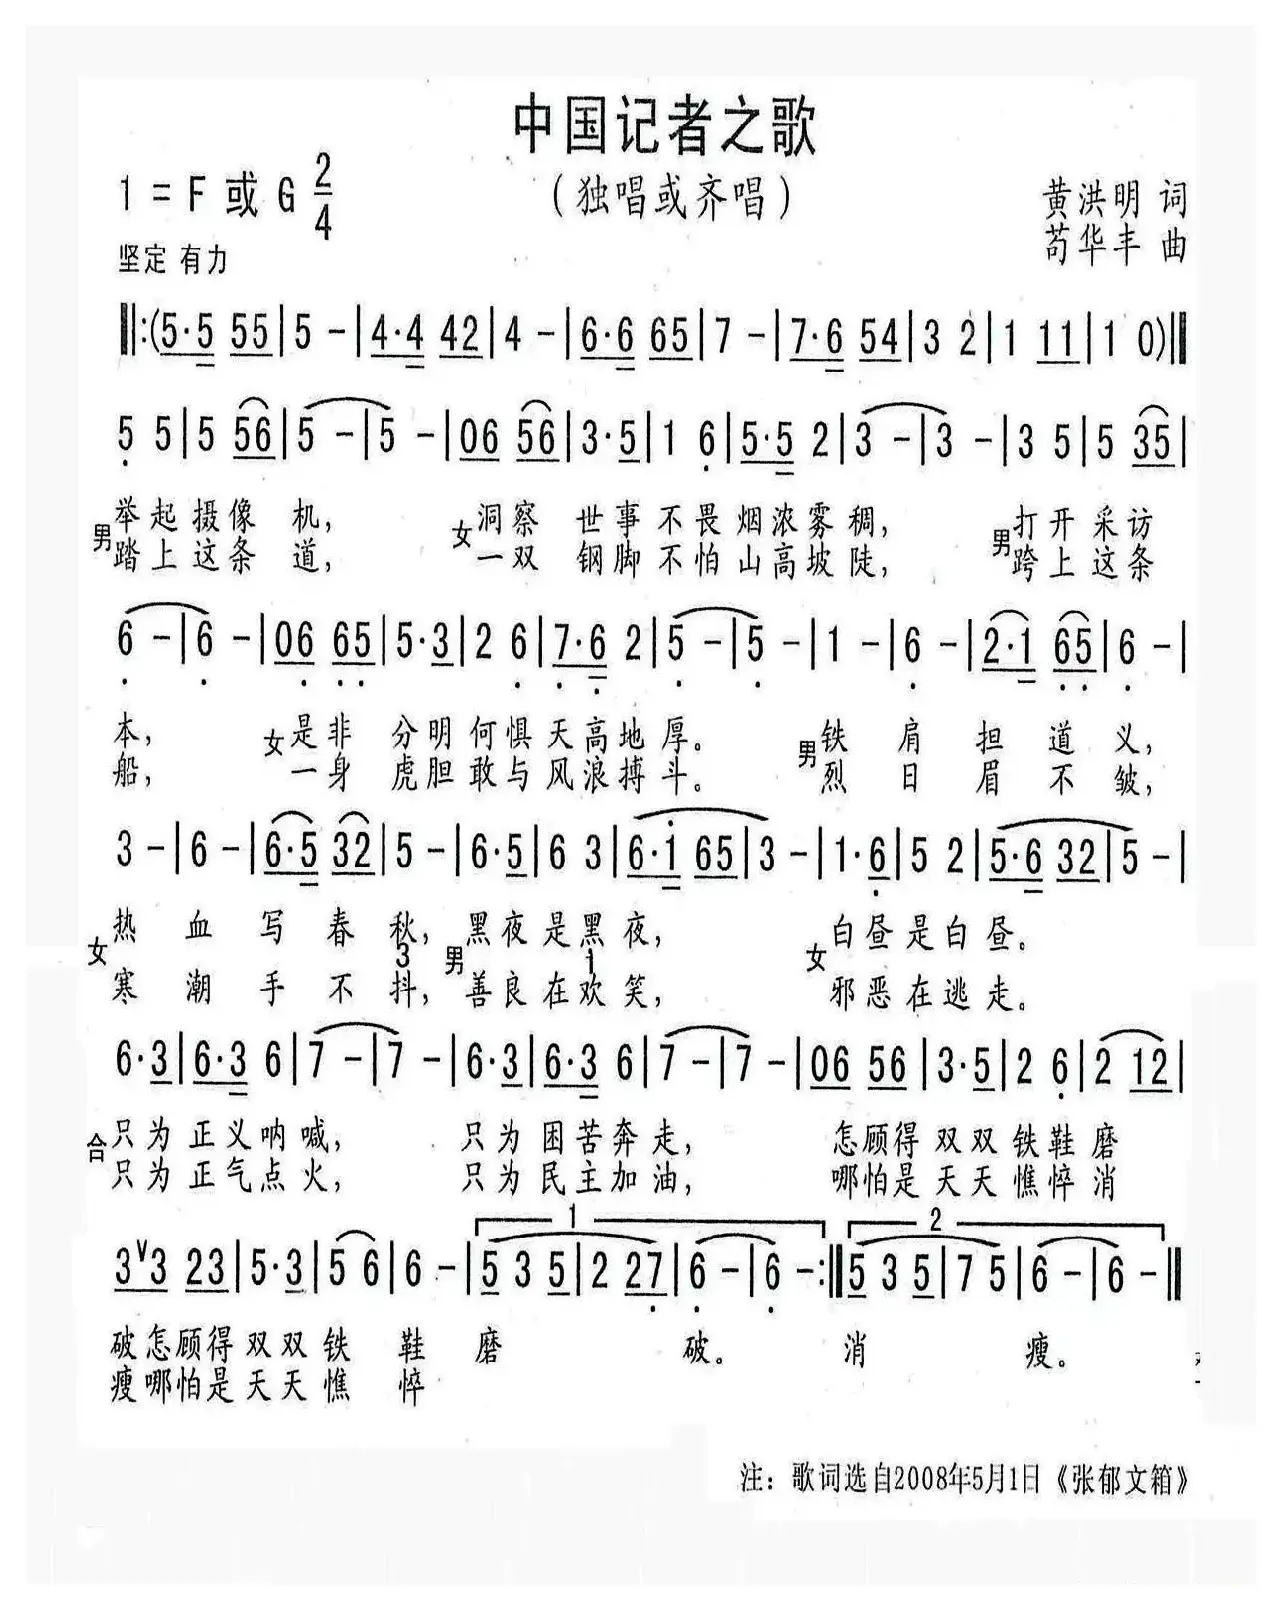 中国记者之歌
1 = F 或 G 2/4
（独唱或齐唱）
黄洪明 词
坚定 有力
苟华丰 曲
‖:(5·5 55|5 -|4·4 42|4 -|6·6 65|7 -|7·6 54|3 2|1 11|1 0)‖
5 5|5 56|5 -|5 -|06 56|3·5|1 6|5·5 2|3 -|3 -|3 5|5 35|
男 举起摄像 机， 女 洞察 世事不畏烟浓雾稠， 男 打开采访
踏上这条 道， 一双 钢脚不怕山高坡陡， 跨上这条
6 -|6 -|06 65|5·3|2 6|7·6 2|5 -|5 -|1 -|6 -|2·1 65|6 -|
本， 女 是非 分明何惧天高地厚。 男 铁 肩 担 道 义，
船， 一身 虎胆敢与风浪搏斗。 烈 日 眉 不 皱，
3 -|6 -|6·5 32|5 -|6·5|6 3|6·i 65|3 -|1·6|5 2|5·6 32|5 -|
女 热 血 写 春 秋， 男 黑夜是黑夜， 女 白昼是白昼。
3 1
寒 潮 手 不 抖， 善良在欢笑， 邪恶在逃走。
6·3|6·3 6|7 -|7 -|6·3|6·3 6|7 -|7 -|06 56|3·5|2 6|2 12|
合 只为 正义呐喊， 只为 困苦奔走， 怎顾得 双双铁鞋磨
只为 正气点火， 只为 民主加油， 哪怕是 天天憔悴消
1 2
3∨3 23|5·3|5 6|6 -|5 3 5|2 27|6 -|6 -:‖5 3 5|7 5|6 -|6 -‖
破怎顾得 双双 铁 鞋 磨 破。 消 瘦。
瘦哪怕是 天天 憔 悴
注：歌词选自2008年5月1日《张郁文箱》